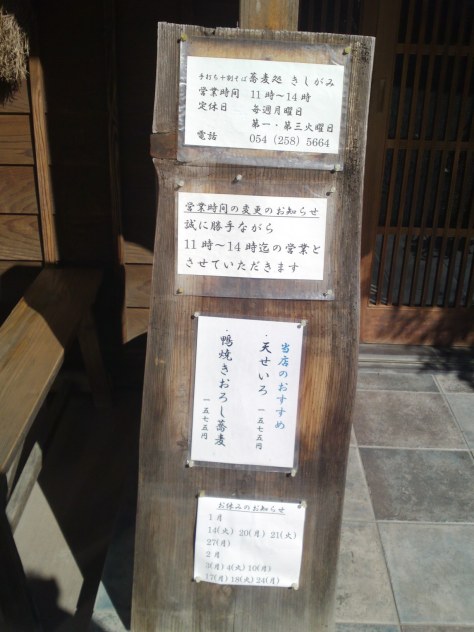 手打ち十割そば 蕎麦処 きしがみ
営業時間 11時～14時
定休日 毎週月曜日
第一・第三火曜日
電話 054（258）5664
営業時間の変更のお知らせ
誠に勝手ながら
11時～14時迄の営業と
させていただきます
当店のおすすめ
・天せいろ 一五七五円
・鴨焼きおろし蕎麦
一五七五円
お休みのお知らせ
1月
14(火) 20(月) 21(火)
27(月)
2月
3(月) 4(火) 10(月)
17(月) 18(火) 24(月)